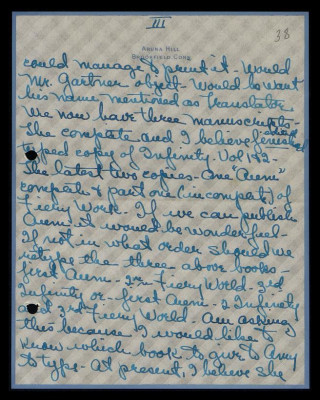 III
38
ARENA HILL
BROOKFIELD CONN.
could manage to print it - Would
Mr. Gartner object - Would he want
his name mentioned as translator -
We now have three manuscripts -
The complete and I believe finished
typed copy of Infinity. Vol 1 & 2 -
The latest two copies - One "Aum"
complete & part one (incomplete) of
Fiery World - If we can publish
Aum it would be wonderful -
If not in what order should we
retype the three above books -
first Aum - 2nd Fiery World - 3rd
Infinity or - first Aum - 2 Infinity
and 3rd Fiery World - Am asking
this because I would like to
know which book to give to Amy
to type - At present, I believe she